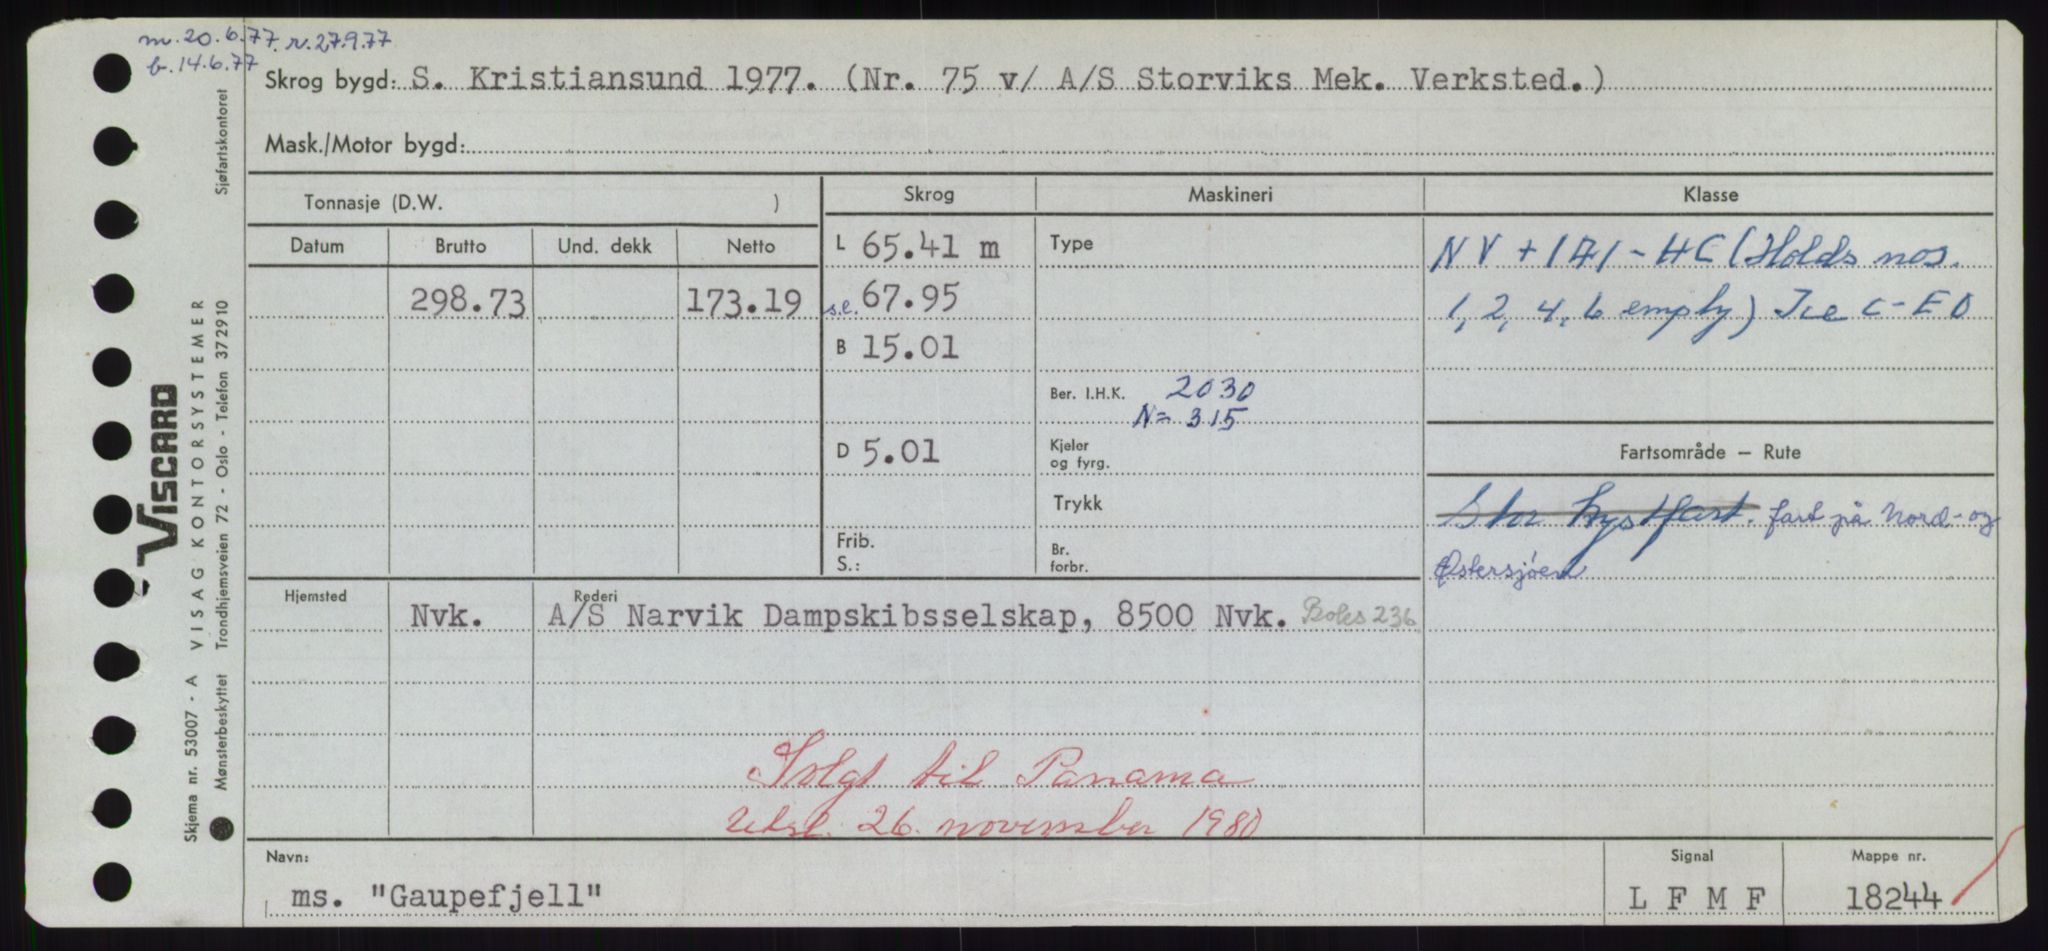 m. 20.6.77. r. 27.9.77
b. 14.6.77
Skrog bygd: S. Kristiansund 1977. (Nr. 75 v/ A/S Storviks Mek. Verksted.)
Mask./Motor bygd:
Tonnasje (D.W. )
Skrog
Maskineri
Klasse
Datum Brutto Und. dekk Netto
L 65.41 m
Type
NV + 1A1 - HC (Holds nos.
298.73 173.19
s.l. 67.95
1, 2, 4, 6 empty) Ice C - EO
B 15.01
Ber. I.H.K. 2030
N = 315
D 5.01
Kjeler
og fyrg.
Fartsområde — Rute
Trykk
Stor kystfart. fart på Nord- og
Østersjøen
Frib.
S.:
Br.
forbr.
Hjemsted
Rederi
Nvk. A/S Narvik Dampskibsselskap, 8500 Nvk. Boks 236
Solgt til Panama
26. november 1980
Navn:
ms. "Gaupefjell"
Signal
L F M F
Mappe nr.
18244
VISCARD
Skjema nr. 53007 - A VISAG KONTORSYSTEMER
Mønsterbeskyttet Trondhjemsveien 72 - Oslo - Telefon 372910 Sjøfartskontoret